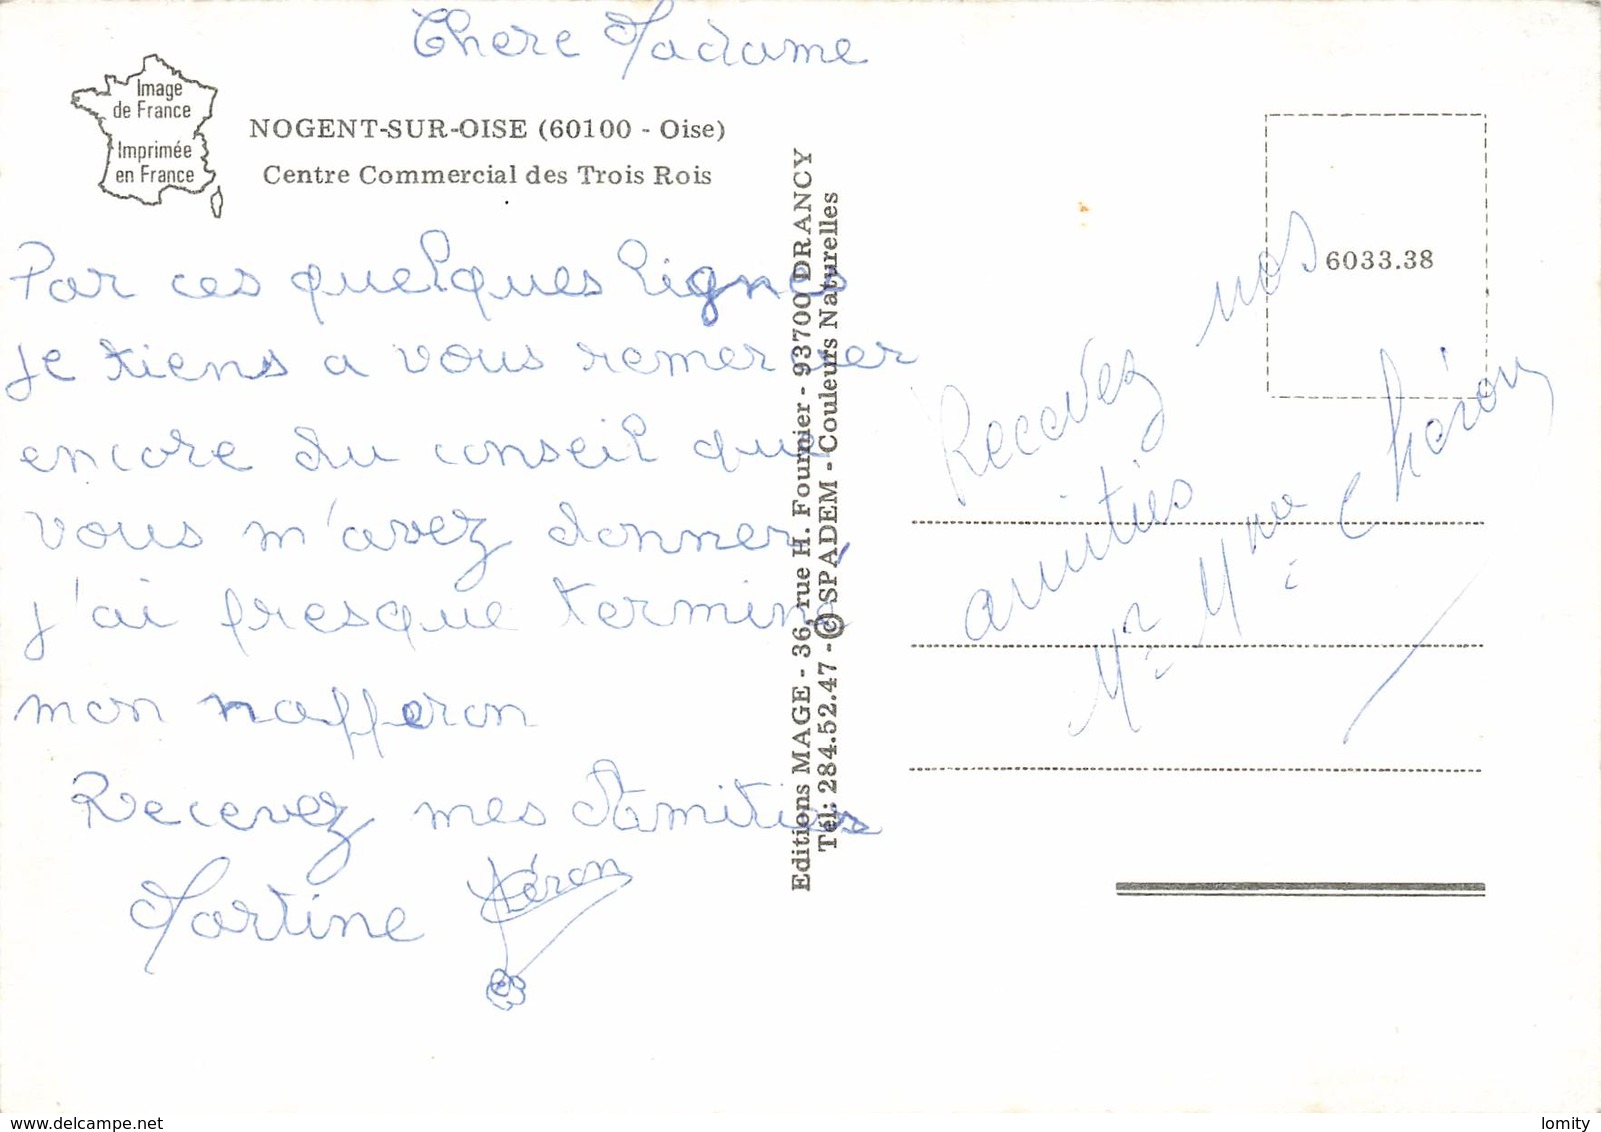 Chere Madame
Image
de France
Imprimée
en France
NOGENT-SUR-OISE (60100 - Oise)
Centre Commercial des Trois Rois
Par ces quelques lignes
je tiens a vous remercier
encore du conseil que
vous m'avez donner,
j'ai presque terminé
mon nafferon
Recevez mes Amitiés
Martine Héron
Editions MAGE - 36, rue H. Fournier - 93700 DRANCY
Tél: 284.52.47 - © SPADEM - Couleurs Naturelles
6033.38
Recevez nos
amitiés
Mr Mme C héron
delcampe.net
lomity